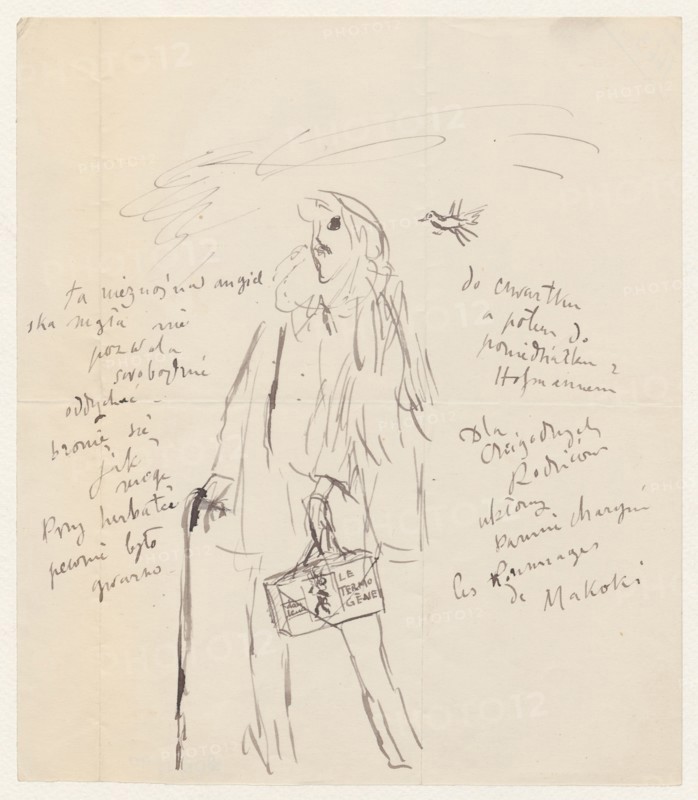 ta nieznośna angiel
ska mgła nie
pozwala
swobodnie
oddychać -
bronię się
jak
mogę
Przy herbatce
pewnie było
gwarno -
do czwartku
a potem do
poniedziałku z
Hofmannem
Dla
Drogich
Rodziców
Pannie Maryni
les hommages
de Makoki
LE
TERMO
GÈNE